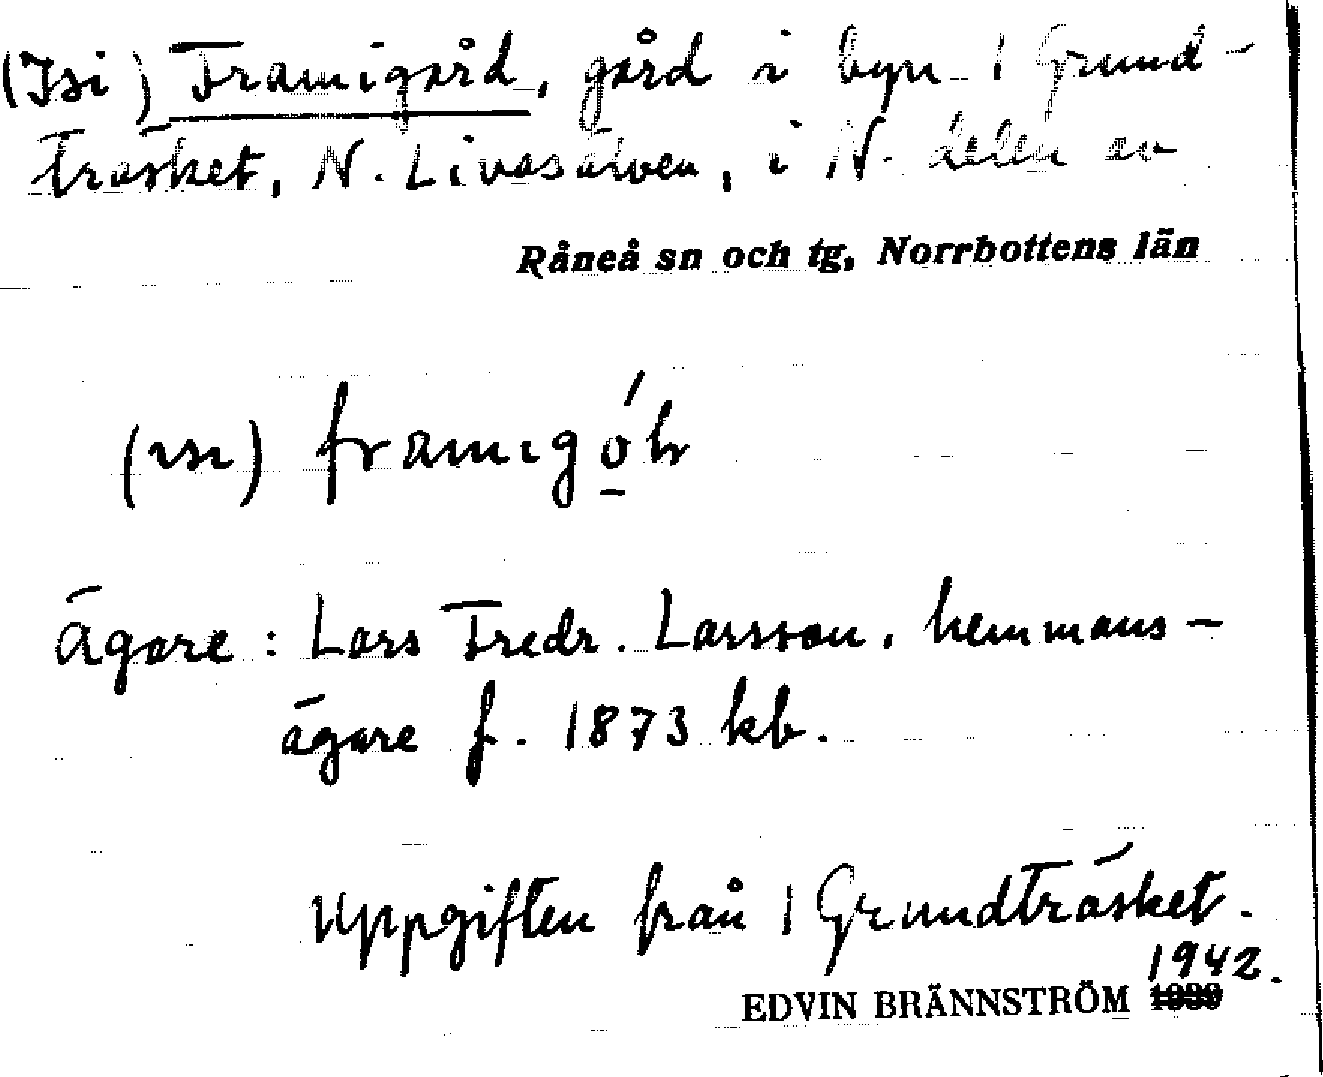 (Isi) Framigård, gård i byn 1 Grund-
träsket, N. Livasälven, i N. delen av
Råneå sn och tg, Norrbottens län
(ısı) framıgó̱h
ägare: Lars Fredr. Larsson, hemmans-
ägare f. 1873 kb.
Uppgiften från 1 Grundträsket.
1942.
EDVIN BRÄNNSTRÖM 1939